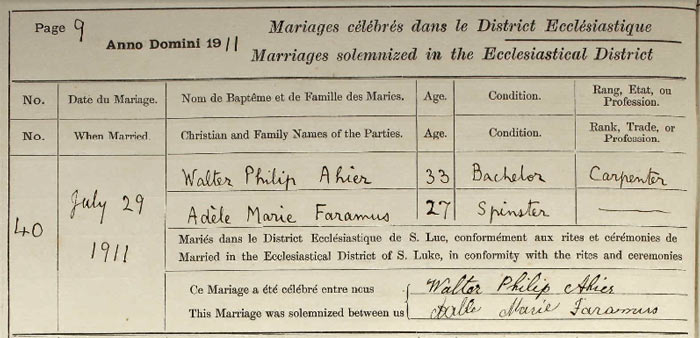 Page 9
Anno Domini 1911
Mariages célébrés dans le District Ecclésiastique
Marriages solemnized in the Ecclesiastical District
No. Date du Mariage. Nom de Baptême et de Famille des Maries. Age. Condition. Rang, Etat, ou Profession.
No. When Married. Christian and Family Names of the Parties. Age. Condition. Rank, Trade, or Profession.
40 July 29 1911
Walter Philip Ahier 33 Bachelor Carpenter
Adèle Marie Faramus 27 Spinster ———
Mariés dans le District Ecclésiastique de S. Luc, conformément aux rites et cérémonies
Married in the Ecclesiastical District of S. Luke, in conformity with the rites and ceremonies
Ce Mariage a été célébré entre nous { Walter Philip Ahier
This Marriage was solemnized between us { Marie Faramus